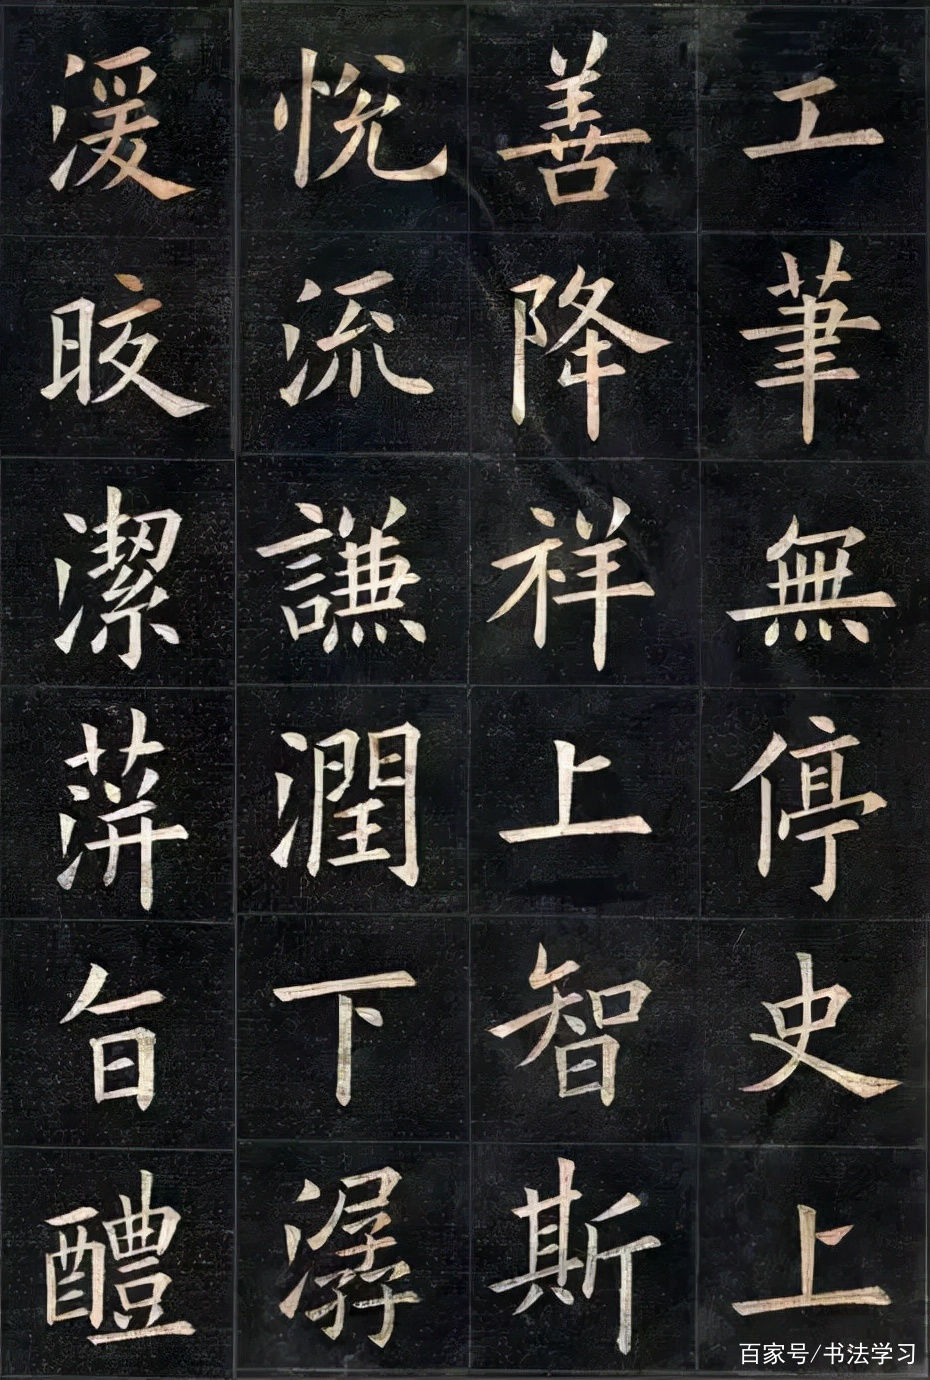 工筆無停史上
善降祥上智斯
悅流謙潤下潺
湲晈潔蓱旨醴
百家号/书法学习